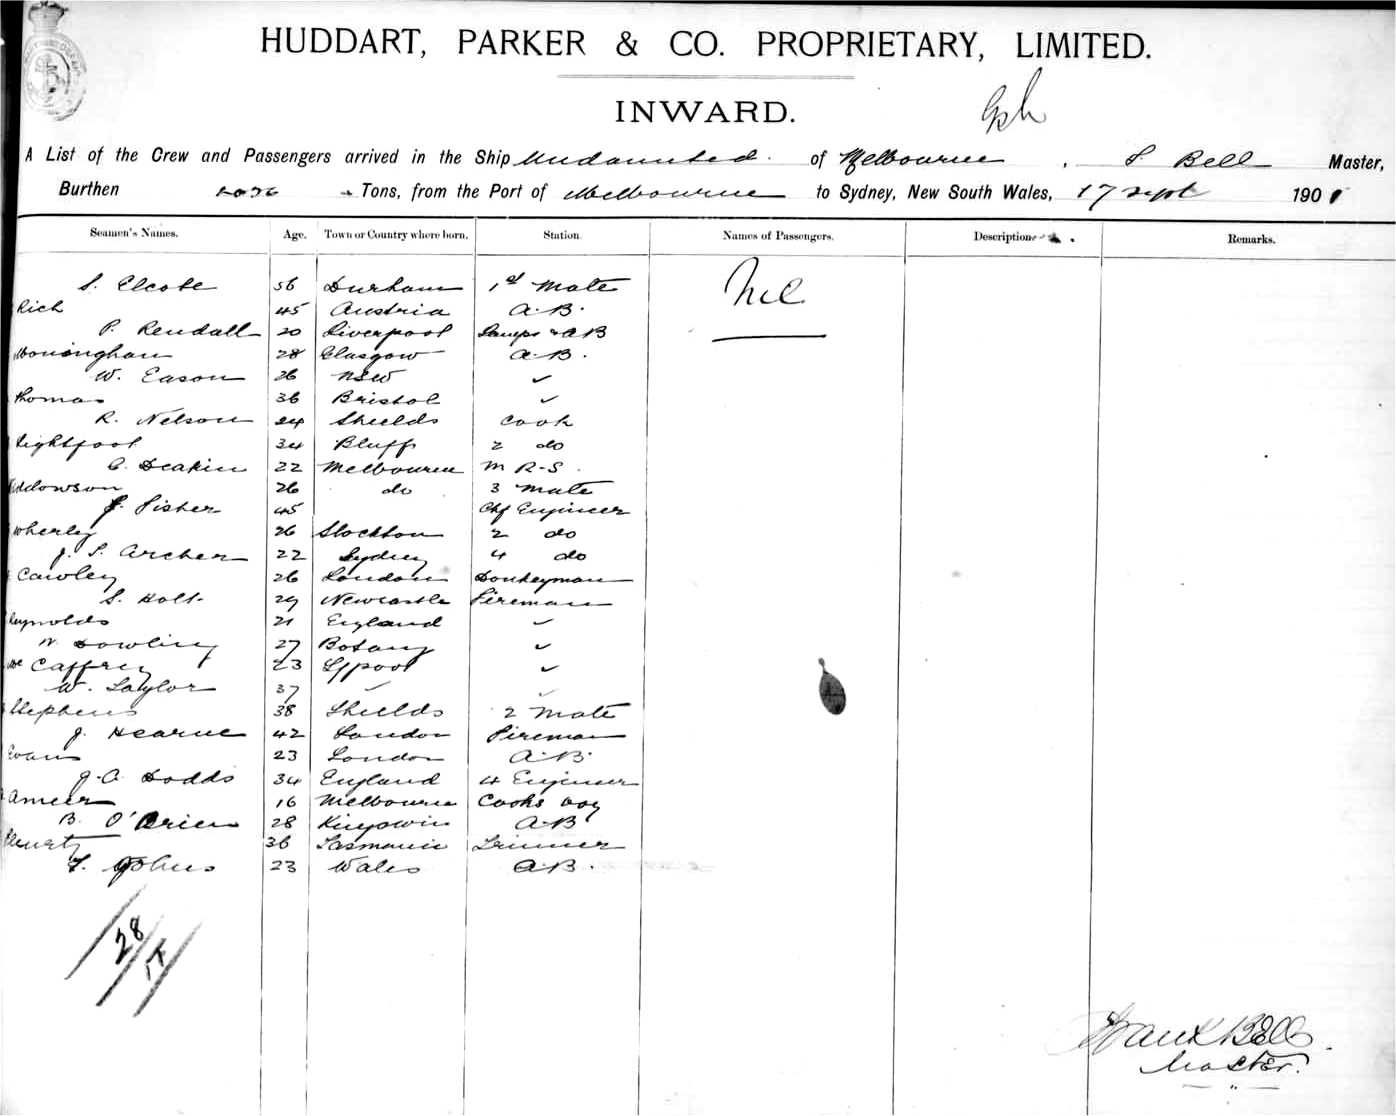 HUDDART, PARKER & CO. PROPRIETARY, LIMITED.
INWARD.
A List of the Crew and Passengers arrived in the Ship Undaunted. of Melbourne, Bell Master,
Burthen Tons, from the Port of Melbourne to Sydney, New South Wales, 17 Sept 190
Seamen's Names. Age. Town or Country where born. Station. Names of Passengers. Descriptions. Remarks.
56 Durham 1st Mate Nil
Rich 45 Austria A.B.
P. Rendall 20 Liverpool Lamps & AB
28 Glasgow A.B.
W. Eason 26 NSW ✓
Thomas 36 Bristol ✓
R. Nelson 24 Shields Cook
Lightfoot 34 Bluff 2 do
C. Deakin 22 Melbourne M R-S.
26 do 3 Mate
Fisher 45 Chf Engineer
Wherley 26 Stockton 2 do
J. S. Archer 22 Sydney 4 do
Cawley 26 London Donkeyman
S. Holt 29 Newcastle Fireman
Reynolds 21 England ✓
Dowling 27 Botany ✓
Mc Caffrey 23 L'pool ✓
W. Taylor 37 ✓ ✓
Stephens 38 Shields 2 Mate
J. Hearne 42 London Fireman
Evans 23 London A.B.
J. A. Dodds 34 England 4 Engineer
Ameer 16 Melbourne Cooks boy
B. O'Brien 28 A.B
36 Tasmania Trimmer
Johns 23 Wales A.B.
28/
Frank Bell
Master.